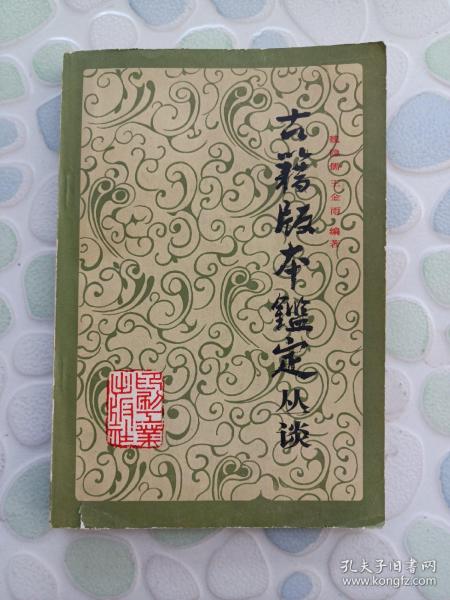 古籍版本鑑定丛谈
魏隐儒 王金雨 编著
印刷工业
出版社
孔夫子旧书网
www.kongfz.com